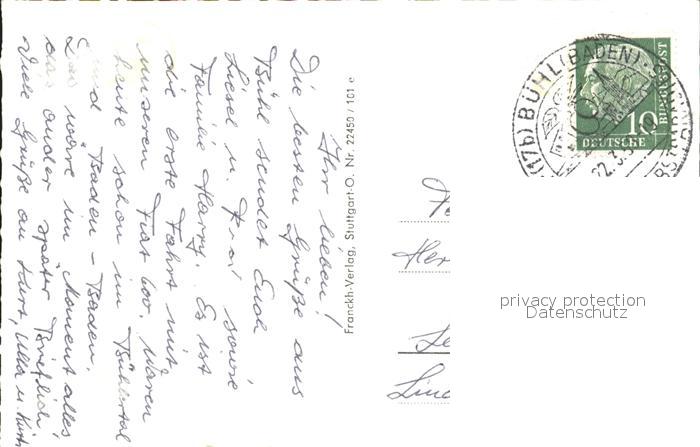 Ihr lieben!
Die besten Grüße aus
Bühl sendet Euch
Liesel u. sowie
Familie Harry. Es ist
die erste Fahrt mit
unseren Fiat 600. Waren
heute schon im Bühlertal
und Baden-Baden.
Das wäre im Moment alles
das ander später Brieflich,
Viele Grüße an Kurt, Ulla u.
Franckh-Verlag, Stuttgart-O. Nr. 22450 / 101 e
(17b) BÜHL (BADEN)
22.3.5
10
DEUTSCHE
BUNDESPOST
Her
Lind
privacy protection
Datenschutz